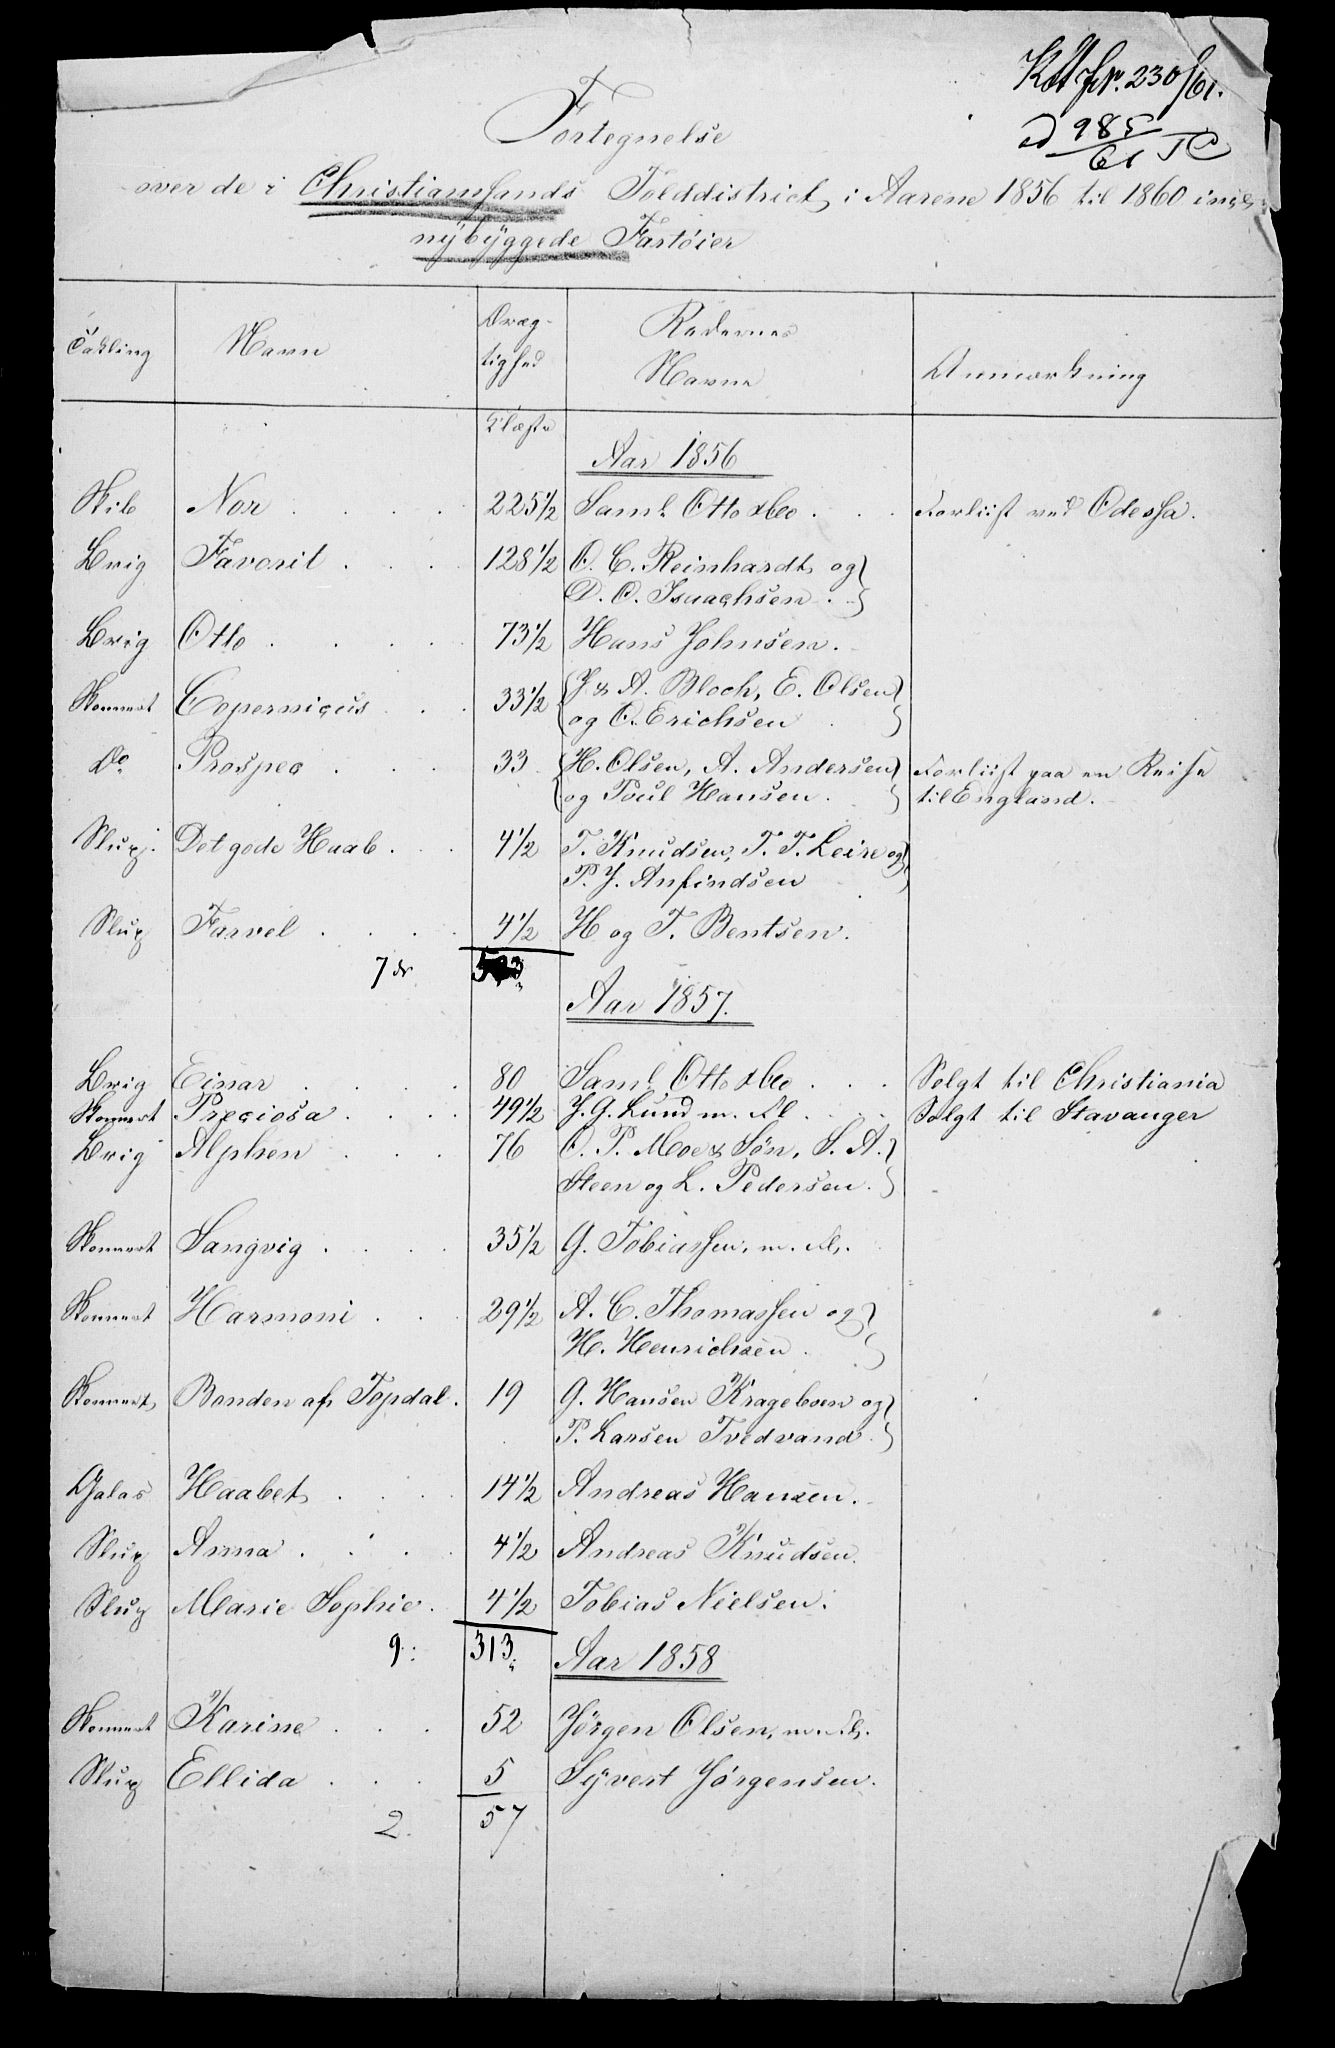 230/61.
ad 985/61 TC
Fortegnelse
over de i Christianssands Tolddistrict, i Aarene 1856 til 1860 incl.
nybyggede Fartøier
Takling Navn Dræg- Redernes Anmærkning
tighed Navne
Clæster
Aar 1856
Skib Nor . . . . 225 1/2 Saml. Otto & Co . . . Forliist ved Odessa.
Brig Favorit . . . 128 1/2 O. C. Reinhardt og }
D. O. Isaachsen . . }
Brig Otto . . . . 73 1/2 Hans Johnsen.
Skonnert Copernicus . . . 33 1/2 { J & A. Bloch, E. Olsen }
{ og O. Erichsen . }
Do. Prospec . . . 33 { H. Olsen, A. Andersen } Forliist paa en Reise
{ og Poul Hansen. } til England.
Slup. Det gode Haab . . . 4 1/2 T. Knudsen, T. T. Leire og }
P. J. Anfindsen }
Slup Farvel . . . . 4 1/2 H og T. Bentsen.
7 503.
Aar 1857.
Brig Einar . . . . 80 Saml. Otto & Co . . . Solgt til Christiania
Skonnert Preciosa . . . . 49 1/2 J. G. Lund m. Fl . . . Solgt til Stavanger
Brig Alphen . . . 76 O. P. Moe & Søn, S. A. }
Steen og L. Pedersen. }
Skonnert Sangvig . . . . 35 1/2 G. Tobiassen, m. Fl.
Skonnert Harmoni . . . 29 1/2 A. C. Thomassen og }
H. Henrichsen . }
Skonnert Bonden af Topdal . 19 G. Hansen Krageboen og }
P. Larsen Tvedvand . }
Galas Haabet . . . . 14 1/2 Andreas Hansen.
Slup Anna . . . . 4 1/2 Andreas Knudsen.
Slup Marie Sophie . 4 1/2 Tobias Nielsen.
9: 313.
Aar 1858
Skonnert Karine . . . 52 Jørgen Olsen, m. Fl.
Slup Ellida . . . 5 Syvert Jørgensen.
2. 57